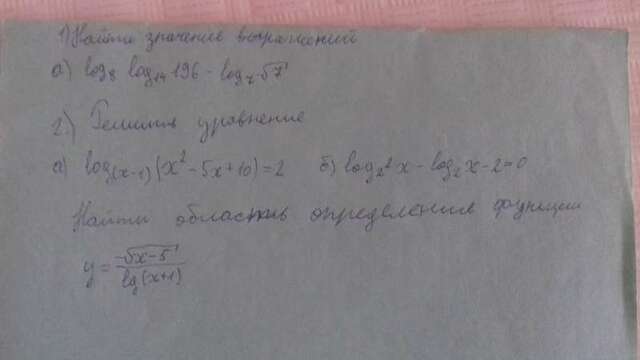 1) Найти значение выражений
а) log₈ log₁₄ 196 - log₇ √7
2) Решить уравнение
а) log(x-1) (x² - 5x + 10) = 2 б) log₂² x - log₂ x - 2 = 0
Найти область определения функции
y = √x-5 / lg(x+1)